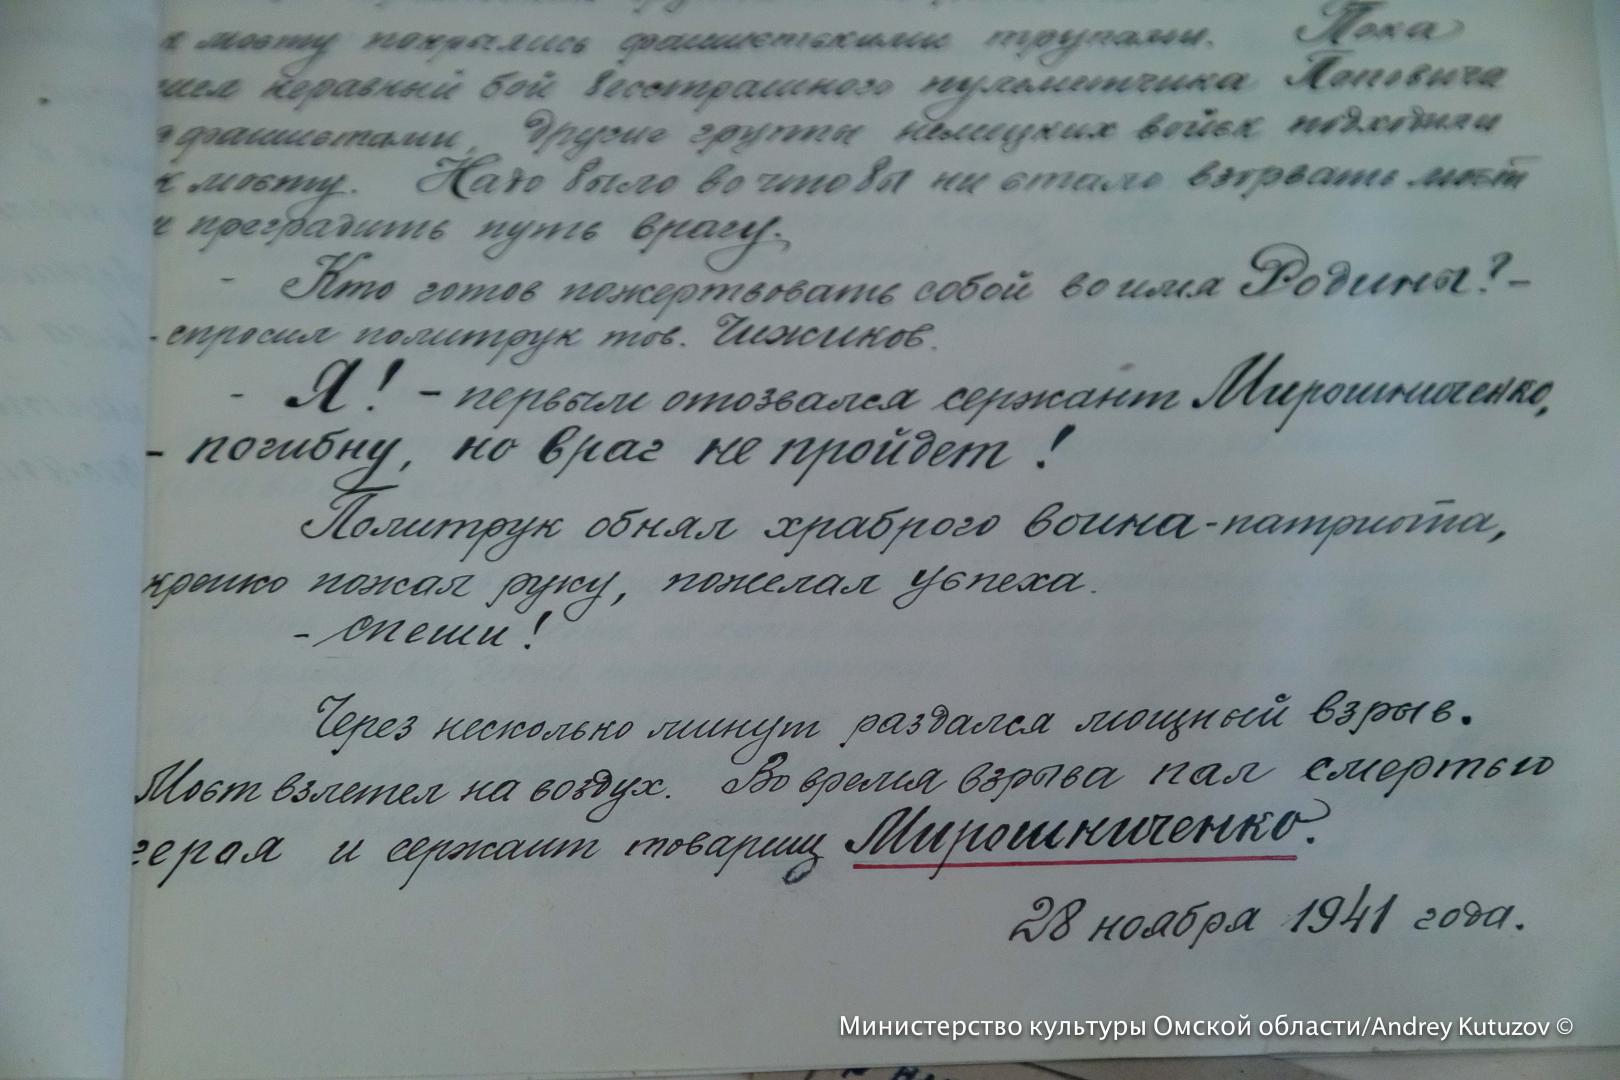 к мосту покрылись фашистскими трупами. Пока
шел неравный бой бесстрашного пулеметчика Поповича
с фашистами, другие группы немецких войск подходили
к мосту. Надо было во что бы ни стало взорвать мост
и преградить путь врагу.
- Кто готов пожертвовать собой во имя Родины? -
- спросил политрук тов. Чижиков.
- Я! - первым отозвался сержант Мирошниченко,
- погибну, но враг не пройдет!
Политрук обнял храброго воина-патриота,
крепко пожал руку, пожелал успеха.
- спеши!
Через несколько минут раздался мощный взрыв.
Мост взлетел на воздух. Во время взрыва пал смертью
героя и сержант товарищ Мирошниченко.
28 ноября 1941 года.
Министерство культуры Омской области/Andrey Kutuzov ©